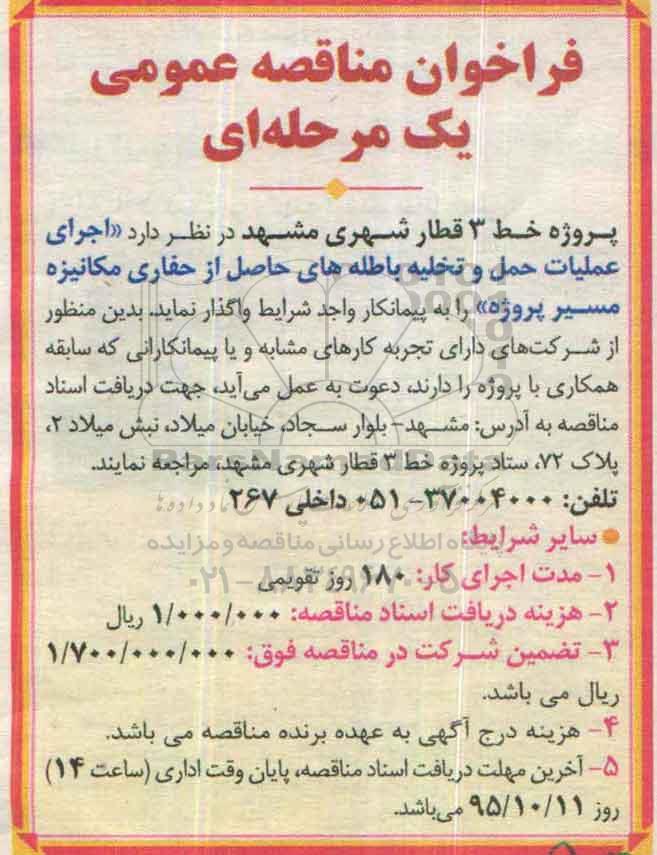 فراخوان مناقصه عمومی
یک مرحله‌ای
پروژه خط ۳ قطار شهری مشهد در نظر دارد «اجرای
عملیات حمل و تخلیه باطله های حاصل از حفاری مکانیزه
مسیر پروژه» را به پیمانکار واجد شرایط واگذار نماید. بدین منظور
از شرکت‌های دارای تجربه کارهای مشابه و یا پیمانکارانی که سابقه
همکاری با پروژه را دارند، دعوت به عمل می‌آید، جهت دریافت اسناد
مناقصه به آدرس: مشهد- بلوار سجاد، خیابان میلاد، نبش میلاد ۲،
پلاک ۷۲، ستاد پروژه خط ۳ قطار شهری مشهد، مراجعه نمایند.
ParsNamadData
تلفن: ۳۷۰۰۴۰۰۰- ۰۵۱ داخلی ۲۶۷
سایر شرایط:
پایگاه اطلاع رسانی مناقصه و مزایده
۱- مدت اجرای کار: ۱۸۰ روز تقویمی
۲- هزینه دریافت اسناد مناقصه: ۱/۰۰۰/۰۰۰ ریال
۳- تضمین شرکت در مناقصه فوق: ۱/۷۰۰/۰۰۰/۰۰۰
ریال می باشد.
۴- هزینه درج آگهی به عهده برنده مناقصه می باشد.
۵- آخرین مهلت دریافت اسناد مناقصه، پایان وقت اداری (ساعت ۱۴)
روز ۹۵/۱۰/۱۱ می‌باشد.